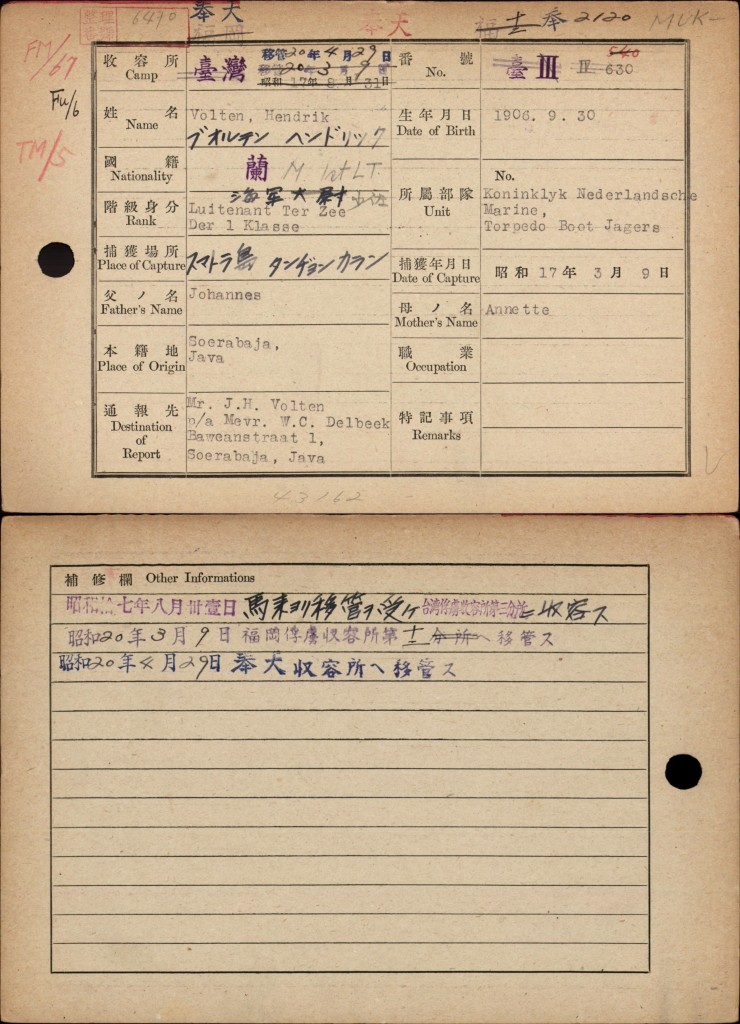 6490
奉天
福岡
奉天
福 十二 奉 2120
MUK-
FM/67
Fu/6
TM/5
收容所
Camp
臺灣
移管20年4月29日
移管20年3月9日
昭和17年8月31日
番號
No.
臺 III
640
IV 630
姓名
Name
Volten, Hendrik
ブオルテン ヘンドリック
生年月日
Date of Birth
1906. 9. 30
國籍
Nationality
蘭
M 1st LT.
階級身分
Rank
海軍大尉
Luitenant Ter Zee
Der 1 Klasse
所屬部隊
Unit
No.
Koninklyk Nederlandsche
Marine,
Torpedo Boot Jagers
捕獲場所
Place of Capture
スマトラ島 タンヂョンカラン
捕獲年月日
Date of Capture
昭和 17年 3月 9日
父ノ名
Father's Name
Johannes
母ノ名
Mother's Name
Annette
本籍地
Place of Origin
Soerabaja,
Java
職業
Occupation
通報先
Destination
of
Report
Mr. J.H. Volten
p/a Mevr. W.C. Delbeek
Baweanstraat 1,
Soerabaja, Java
特記事項
Remarks
43162
補修欄 Other Informations
昭和拾七年八月卅壹日 馬来ヨリ移管ヲ受ケ 台湾俘虜收容所第三分所ニ收容ス
昭和20年3月9日福岡俘虜収容所第十二分所へ移管ス
昭和20年4月29日 奉天収容所へ移管ス